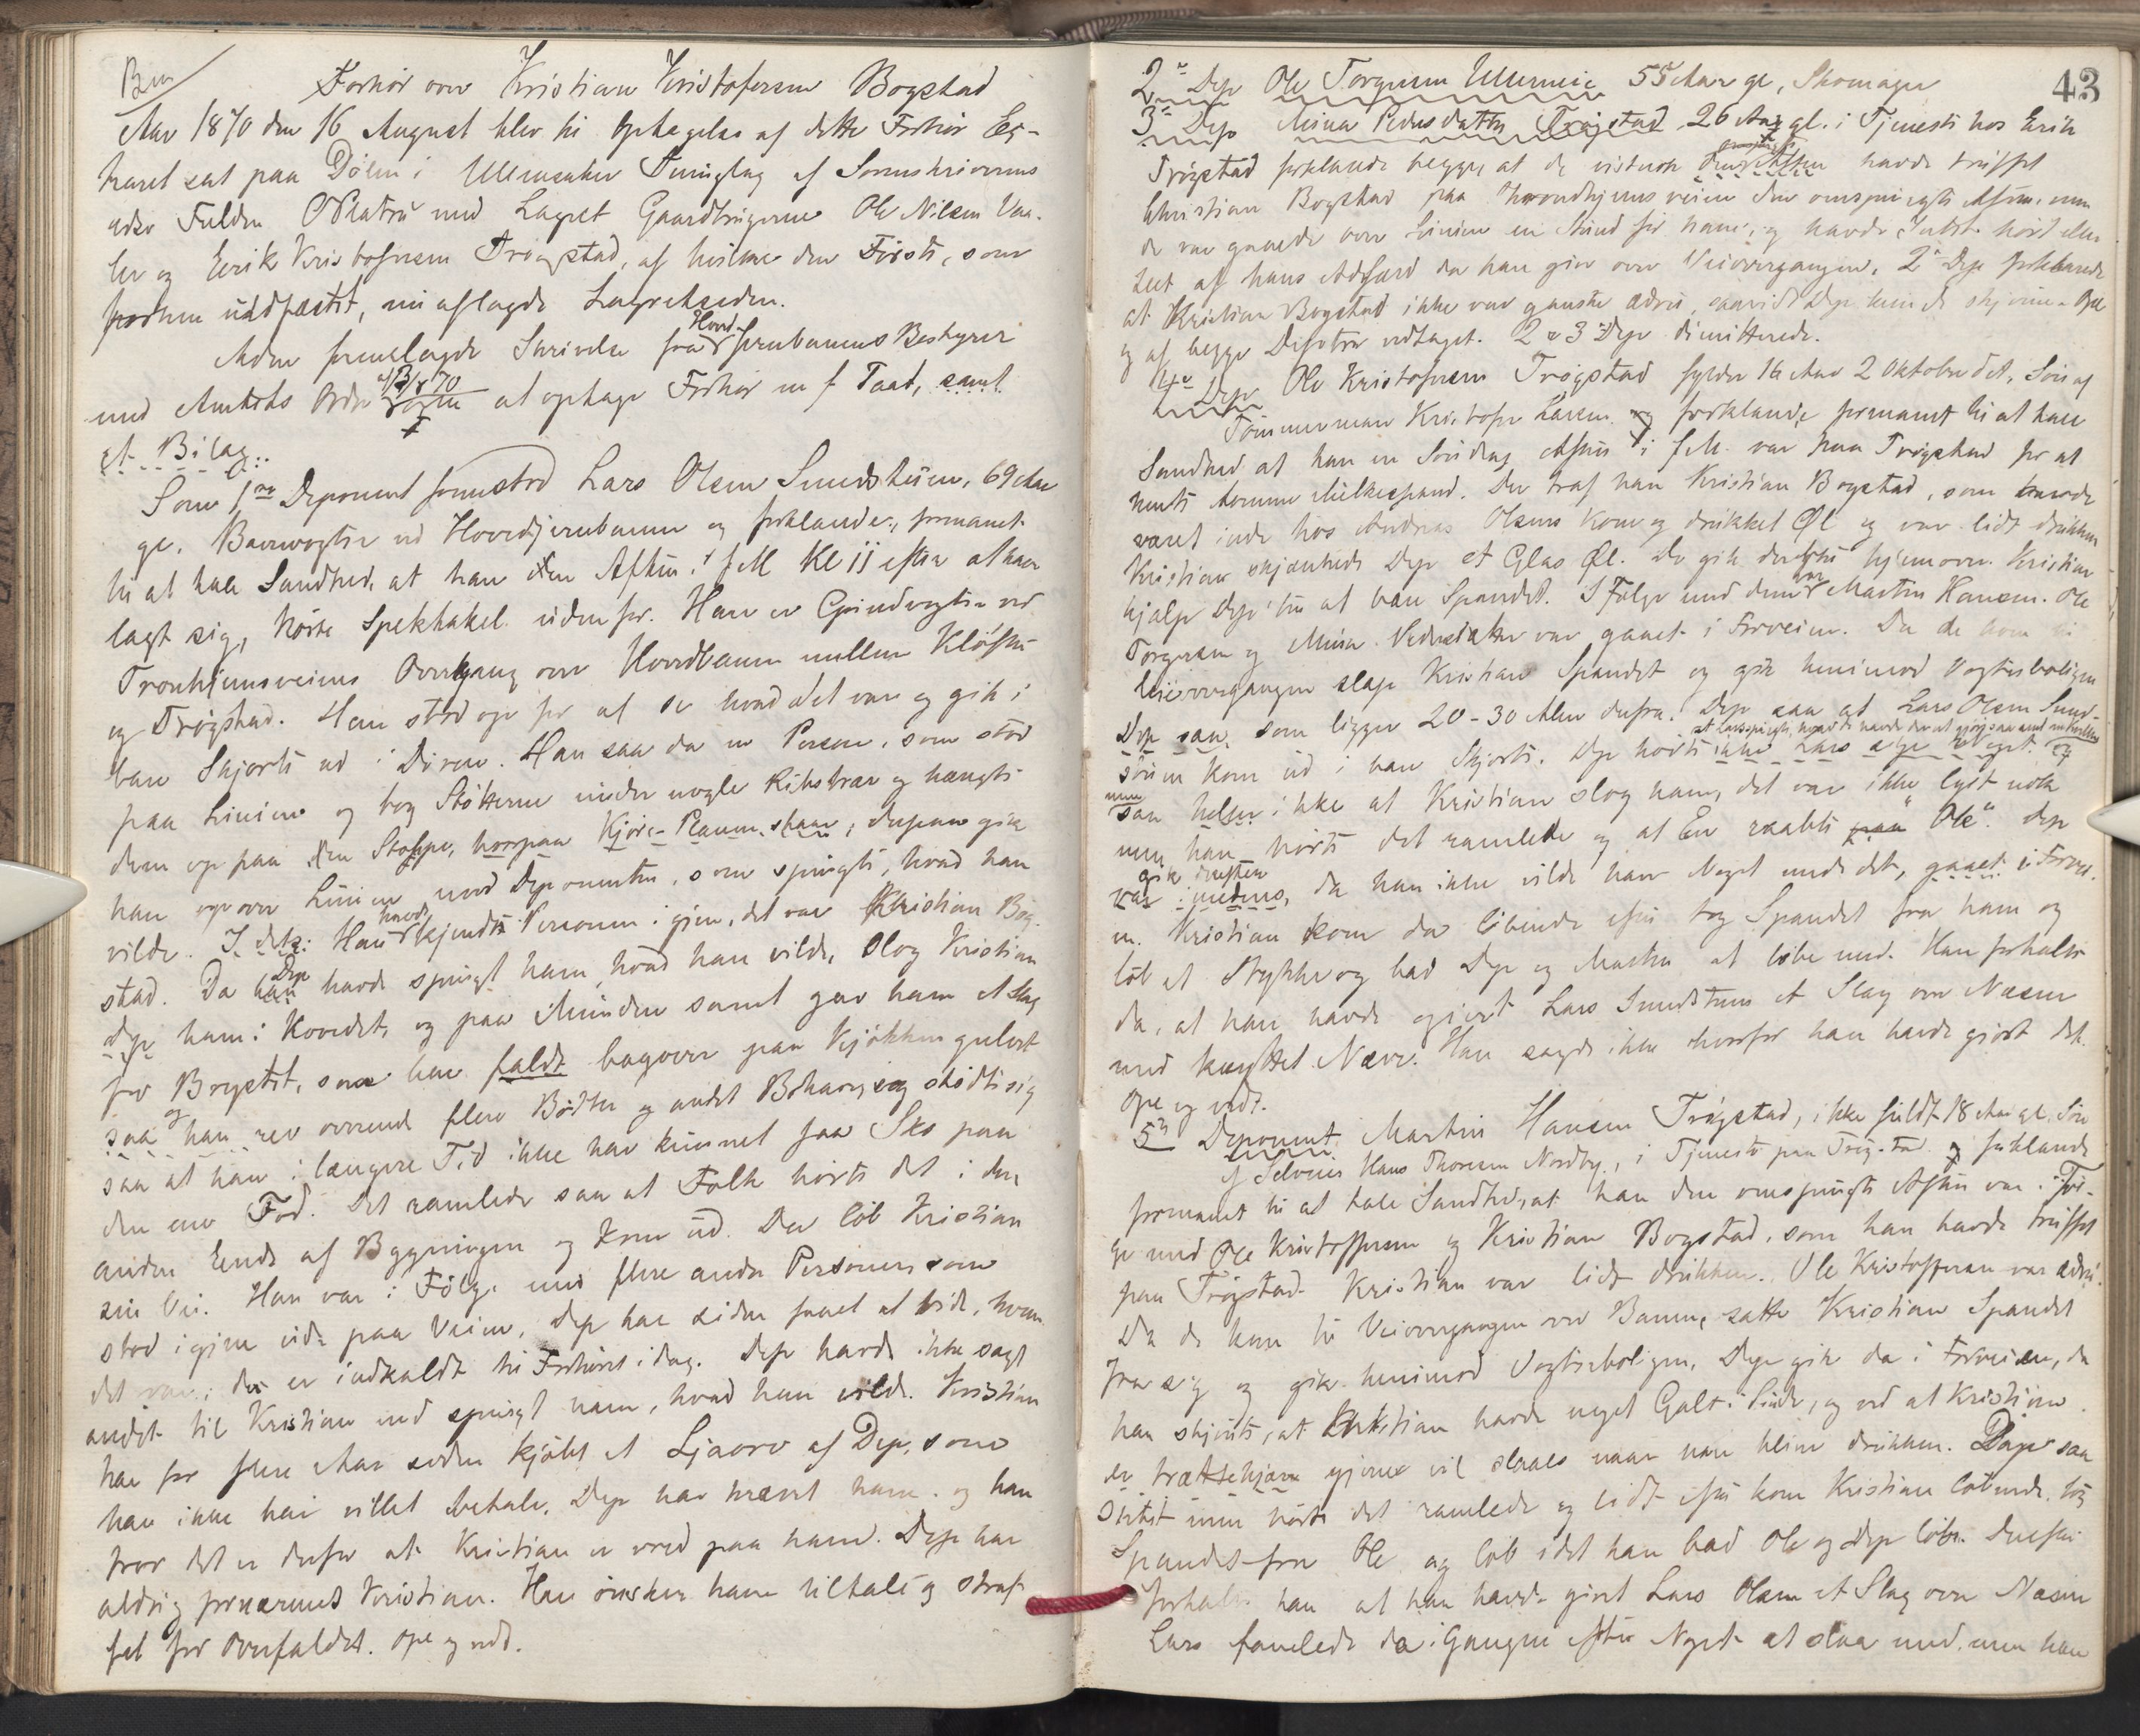 Forhör over Kristian Kristofersen Bogstad
Aar 1870 den 16 August blev til Optagelse af dette Forhör Ex-
traret sat paa Dölin i Ullensaker Thinglag af Sorenskriverens
edsv Fuldm med Lagret Gaardbrugerne Ole Nilsen
ler og Erik Kristofersen Trögstad, af hvilke den Förste, som
forhen uedfæstet, nu aflagde Lagretseeden.
Adm fremlagde Skrivelse fra Hoved Jernbanens Bestyrer
med Amtets Ordre af 13/8 70 at optage Forhör m f Taat, samt
et Bilag.
Som 1ste Deponent fremstod Lars Olsen Sundstuen, 69 Aar
gl. Banevogter ved Hovedjernbanen og forklarede, formanet
til at tale Sandhed, at han den Aften i f M Kl 11 efter at have
lagt sig, hörte Spektakel udenfor. Han er Grindvogter ved
Tronhjemsveiens Overgang over Hovedbanen mellem Klöften
og Trögstad. Han stod op for at se hvad det var og gik i
bare Skjorte ud i Dören. Han saa da en Person, som stod
paa Linien og tog Stötterne under nogle
dem op paa den Stoppe, hvorpaa Kjöre-Planen staar, derpaa gik
han opover Linien mod Deponenten, som spurgte, hvad han
vilde. I det: Han havde kjendte Personen igjen, det var Kristian Bog-
stad. Da han Dep havde spurgt ham, hvad han vilde, slog Kristian
Dep ham i Hovedet, og paa Munden samt gav ham et Slag
for Brystet, som han faldt bagover paa Kjökkengulvet
saa og han rev overende flere Bötter og andet Bohave, og stödte sig
saa at han i længere Tid ikke har kunnet faa Sko paa
den ene Fod. Det ramlede saa at Folk hörte det i den
anden Ende af Bygningen og kom ud. Da löb Kristian
sin Vei. Han var i Fölge med flere andre Personer, som
stod igjen ude paa Veien, Dep har siden faaet at vide, hvem
det var; de er indkaldt til Forhöret idag. Dep havde ikke sagt
andet til Kristian end spurgt ham, hvad han vilde. Kristian
har for flere Aar siden kjöbt et Ljaaorv af Dep, som
han ikke har villet betale. Dep har krævet ham og han
tror det er derfor at Kristian er vred paa ham. Dep har
aldrig fornærmet Kristian. Han önsker ham tiltalt og straf-
fet for Overfaldet. Opl og vedt.
43
2n Dep Ole Torgersen Ullerneie 55 Aar gl, Skomager
3n Dep Mina Pedersdatter Trögstad 26 Aar gl. i Tjeneste hos Erik
Trögstad forklarede begge, at de vistnok havde truffet
Christian Bogstad paa Throndhjemsveien den omspurgte Aften, men
de var gaaede over Linien en Stund för ham, og havde Intet hört eller
seet af hans Adfærd da han gik over Veiovergangen. 2n Dep forklarede
at Kristian Bogstad ikke var ganske ædru, saavidt Dep kunde skjönne. Opl
og af begge Deptre vedtaget. 2 & 3 Dep dimitterede.
4n Dep Ole Kristofersen Trögstad fylder 16 Aar 2 Oktober det. Sön af
Tömmermand Kristofer Larsen og forklarede formanet til at tale
Sandhed at han en Söndag Aften i f M. var paa Trögstad for at
hente tomme Melkespand. Der traf han Kristian Bogstad, som havde
været inde hos Andreas Olsens Kone og drukket Öl og var lidt drukken
Kristian skjænkede Dep et Glas Öl. De gik derefter hjemover. Kristian
hjalp Dep til at bære Spandet. I Fölge med dem var Martin Hansen. Ole
Torgersen og Mina Pedersdatter var gaaet i Forveien. Da de kom til
Veiovergangen slap Kristian Spandet og gik henimod Vogterboligen
Dep saa, som ligger 20-30 Alen derfra. Dep saa at Lars Olsen Sund-
stuen kom ud i bare Skjorte. Dep hörte ikke Lars sige Noget og
men saa heller ikke at Kristian slog ham, det var ikke lyst nok
men han hörte det ramlede og at En raabte paa "Ole". Dep
var imedens gik derefter, da han ikke vilde have Noget med det, gaaet i Forvei-
en. Kristian kom da löbende efter tog Spandet fra ham og
löb et Stykke og bad Dep og Martin at löbe med. Han fortalte
da, at han havde givet Lars Sundstuen et Slag over Næsen
med knyttet Næve. Han sagde ikke hvorfor han havde gjört det.
Opl og vedt.
5n Deponent Martin Hansen Trögstad, ikke fuldt 18 Aar gl. Sön
af Selveier Hans Thoresen Nordby, i Tjeneste paa Trögstad og forklarede
formanet til at tale Sandhed, at han den omspurgte Aften var i Föl-
ge med Ole Kristoffersen og Kristian Bogstad, som han havde truffet
paa Trögstad. Kristian var lidt drukken. Ole Kristoffersen var ædru.
Da de kom til Veiovergangen ved Banen, satte Kristian Spandet
fra sig og gik henimod Vogterboligen, Dep gik da i Forveien, da
han skjönte, at Kristian havde noget Galt i Sinde, og ved at Kristian
er trættekjær gjerne vil slaaes naar han bliver drukken. Dep saa
Intet men hörte det ramlede og lidt efter kom Kristian löbende, tog
Spandet fra Ole og löb idet han bad Ole og Dep löbe. Derefter
fortalte han at han havde givet Lars Olsen et Slag over Næsen
Lars famlede da i Gangen efter Noget at slaa med, men han